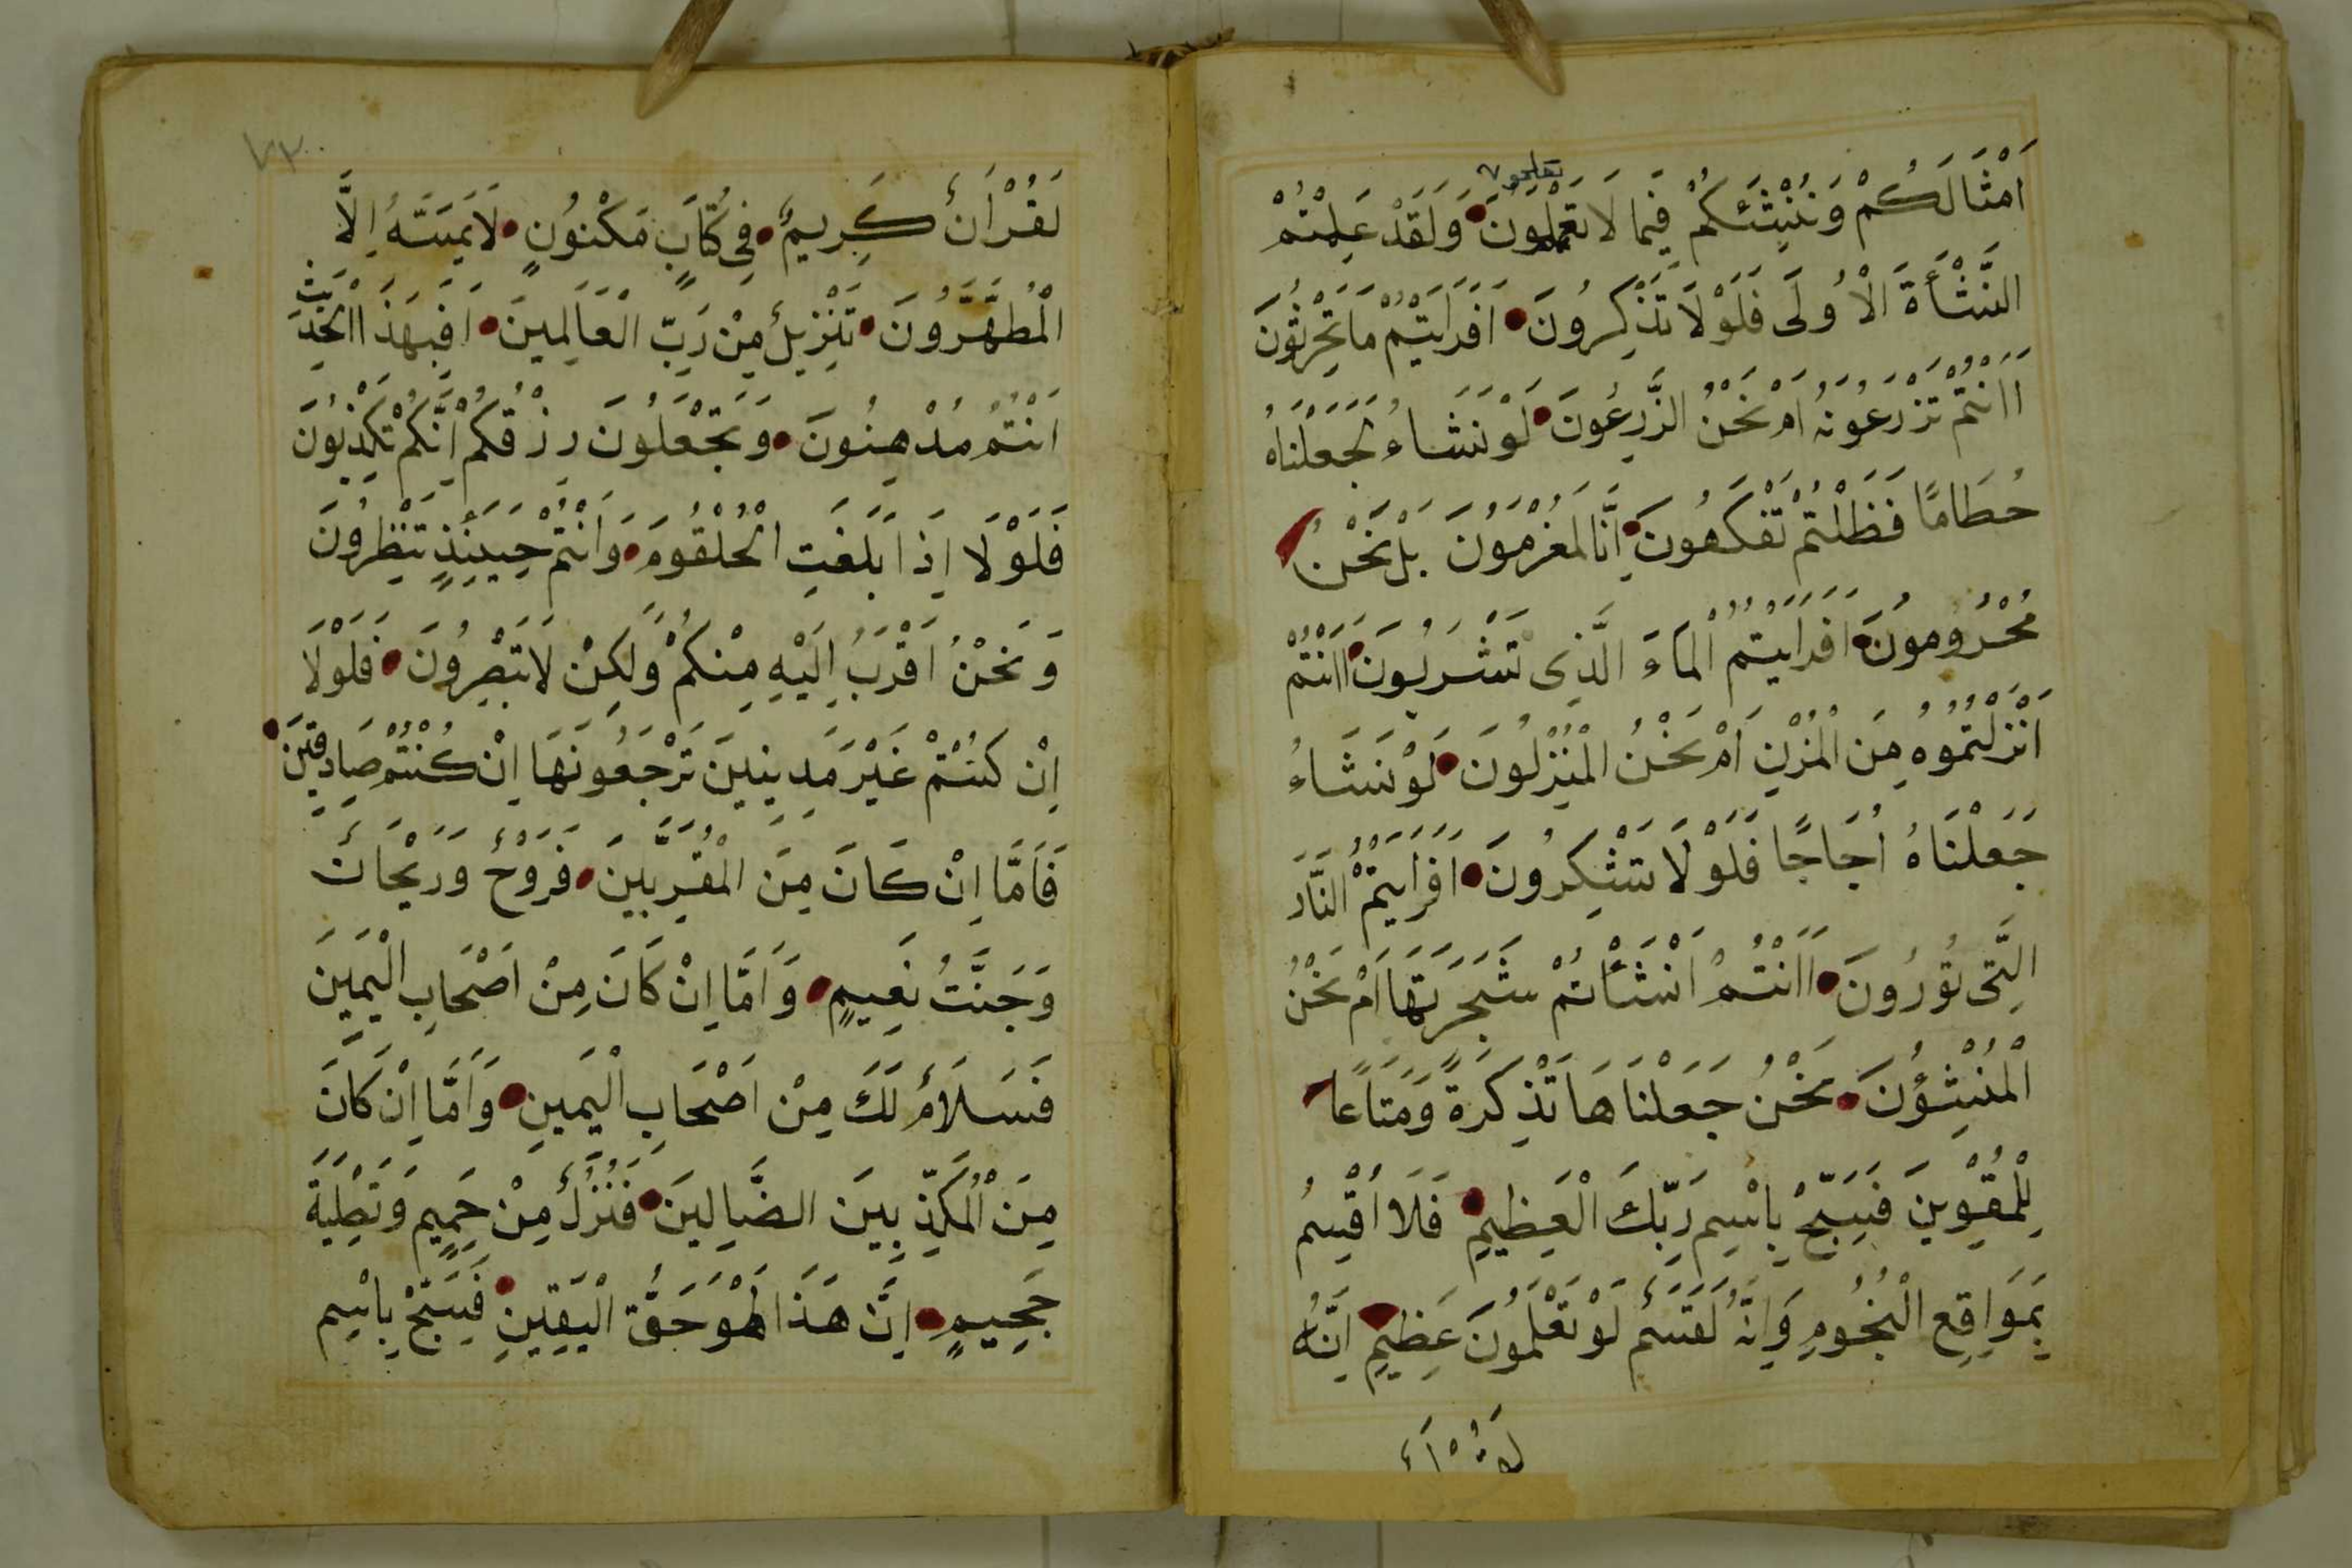 تعلمون
اَمْثَالَكُمْ وَنُنْشِئَكُمْ فِيمَا لَا تَعْلَمُونَ وَلَقَدْ عَلِمْتُمْ
النَّشْأَةَ الْاُولَى فَلَوْلَا تَذَكَّرُونَ اَفَرَايْتُمْ مَا تَحْرُثُونَ
ااَنْتُمْ تَزْرَعُونَهُ اَمْ نَحْنُ الزَّرِعُونَ لَوْ نَشَاءُ لَجَعَلْنَاهُ
حُطَامًا فَظَلْتُمْ تَفَكَّهُونَ اِنَّا لَمُغْرَمُونَ بَلْ نَحْنُ
مَحْرُومُونَ اَفَرَايْتُمُ الْمَاءَ الَّذِى تَشْرَبُونَ ااَنْتُمْ
اَنْزَلْتُمُوهُ مِنَ الْمُزْنِ اَمْ نَحْنُ الْمُنْزِلُونَ لَوْ نَشَاءُ
جَعَلْنَاهُ اُجَاجًا فَلَوْلَا تَشْكُرُونَ اَفَرَايْتُمُ النَّارَ
الَّتِى تُورُونَ ااَنْتُمْ اَنْشَأْتُمْ شَجَرَتَهَا اَمْ نَحْنُ
الْمُنْشِؤُنَ نَحْنُ جَعَلْنَاهَا تَذْكِرَةً وَمَتَاعًا
لِلْمُقْوِينَ فَسَبِّحْ بِاسْمِ رَبِّكَ الْعَظِيمِ فَلَا اُقْسِمُ
بِمَوَاقِعِ النُّجُومِ وَاِنَّهُ لَقَسَمٌ لَوْ تَعْلَمُونَ عَظِيمٌ اِنَّهُ
٧٣٠
لَقُرْاٰنٌ كَرِيمٌ فِى كِتَابٍ مَكْنُونٍ لَا يَمَسُّهُ اِلَّا
الْمُطَهَّرُونَ تَنْزِيلٌ مِنْ رَبِّ الْعَالَمِينَ اَفَبِهَذَا الْحَدِيثِ
اَنْتُمْ مُدْهِنُونَ وَتَجْعَلُونَ رِزْقَكُمْ اَنَّكُمْ تُكَذِّبُونَ
فَلَوْلَا اِذَا بَلَغَتِ الْحُلْقُومَ وَاَنْتُمْ حِينَئِذٍ تَنْظُرُونَ
وَنَحْنُ اَقْرَبُ اِلَيْهِ مِنْكُمْ وَلَكِنْ لَا تُبْصِرُونَ فَلَوْلَا
اِنْ كُنْتُمْ غَيْرَ مَدِينِينَ تَرْجِعُونَهَا اِنْ كُنْتُمْ صَادِقِينَ
فَاَمَّا اِنْ كَانَ مِنَ الْمُقَرَّبِينَ فَرَوْحٌ وَرَيْحَانٌ
وَجَنَّتُ نَعِيمٍ وَاَمَّا اِنْ كَانَ مِنْ اَصْحَابِ الْيَمِينِ
فَسَلَامٌ لَكَ مِنْ اَصْحَابِ الْيَمِينِ وَاَمَّا اِنْ كَانَ
مِنَ الْمُكَذِّبِينَ الضَّالِينَ فَنُزُلٌ مِنْ حَمِيمٍ وَتَصْلِيَةُ
جَحِيمٍ اِنَّ هَذَا لَهُوَ حَقُّ الْيَقِينِ فَسَبِّحْ بِاسْمِ